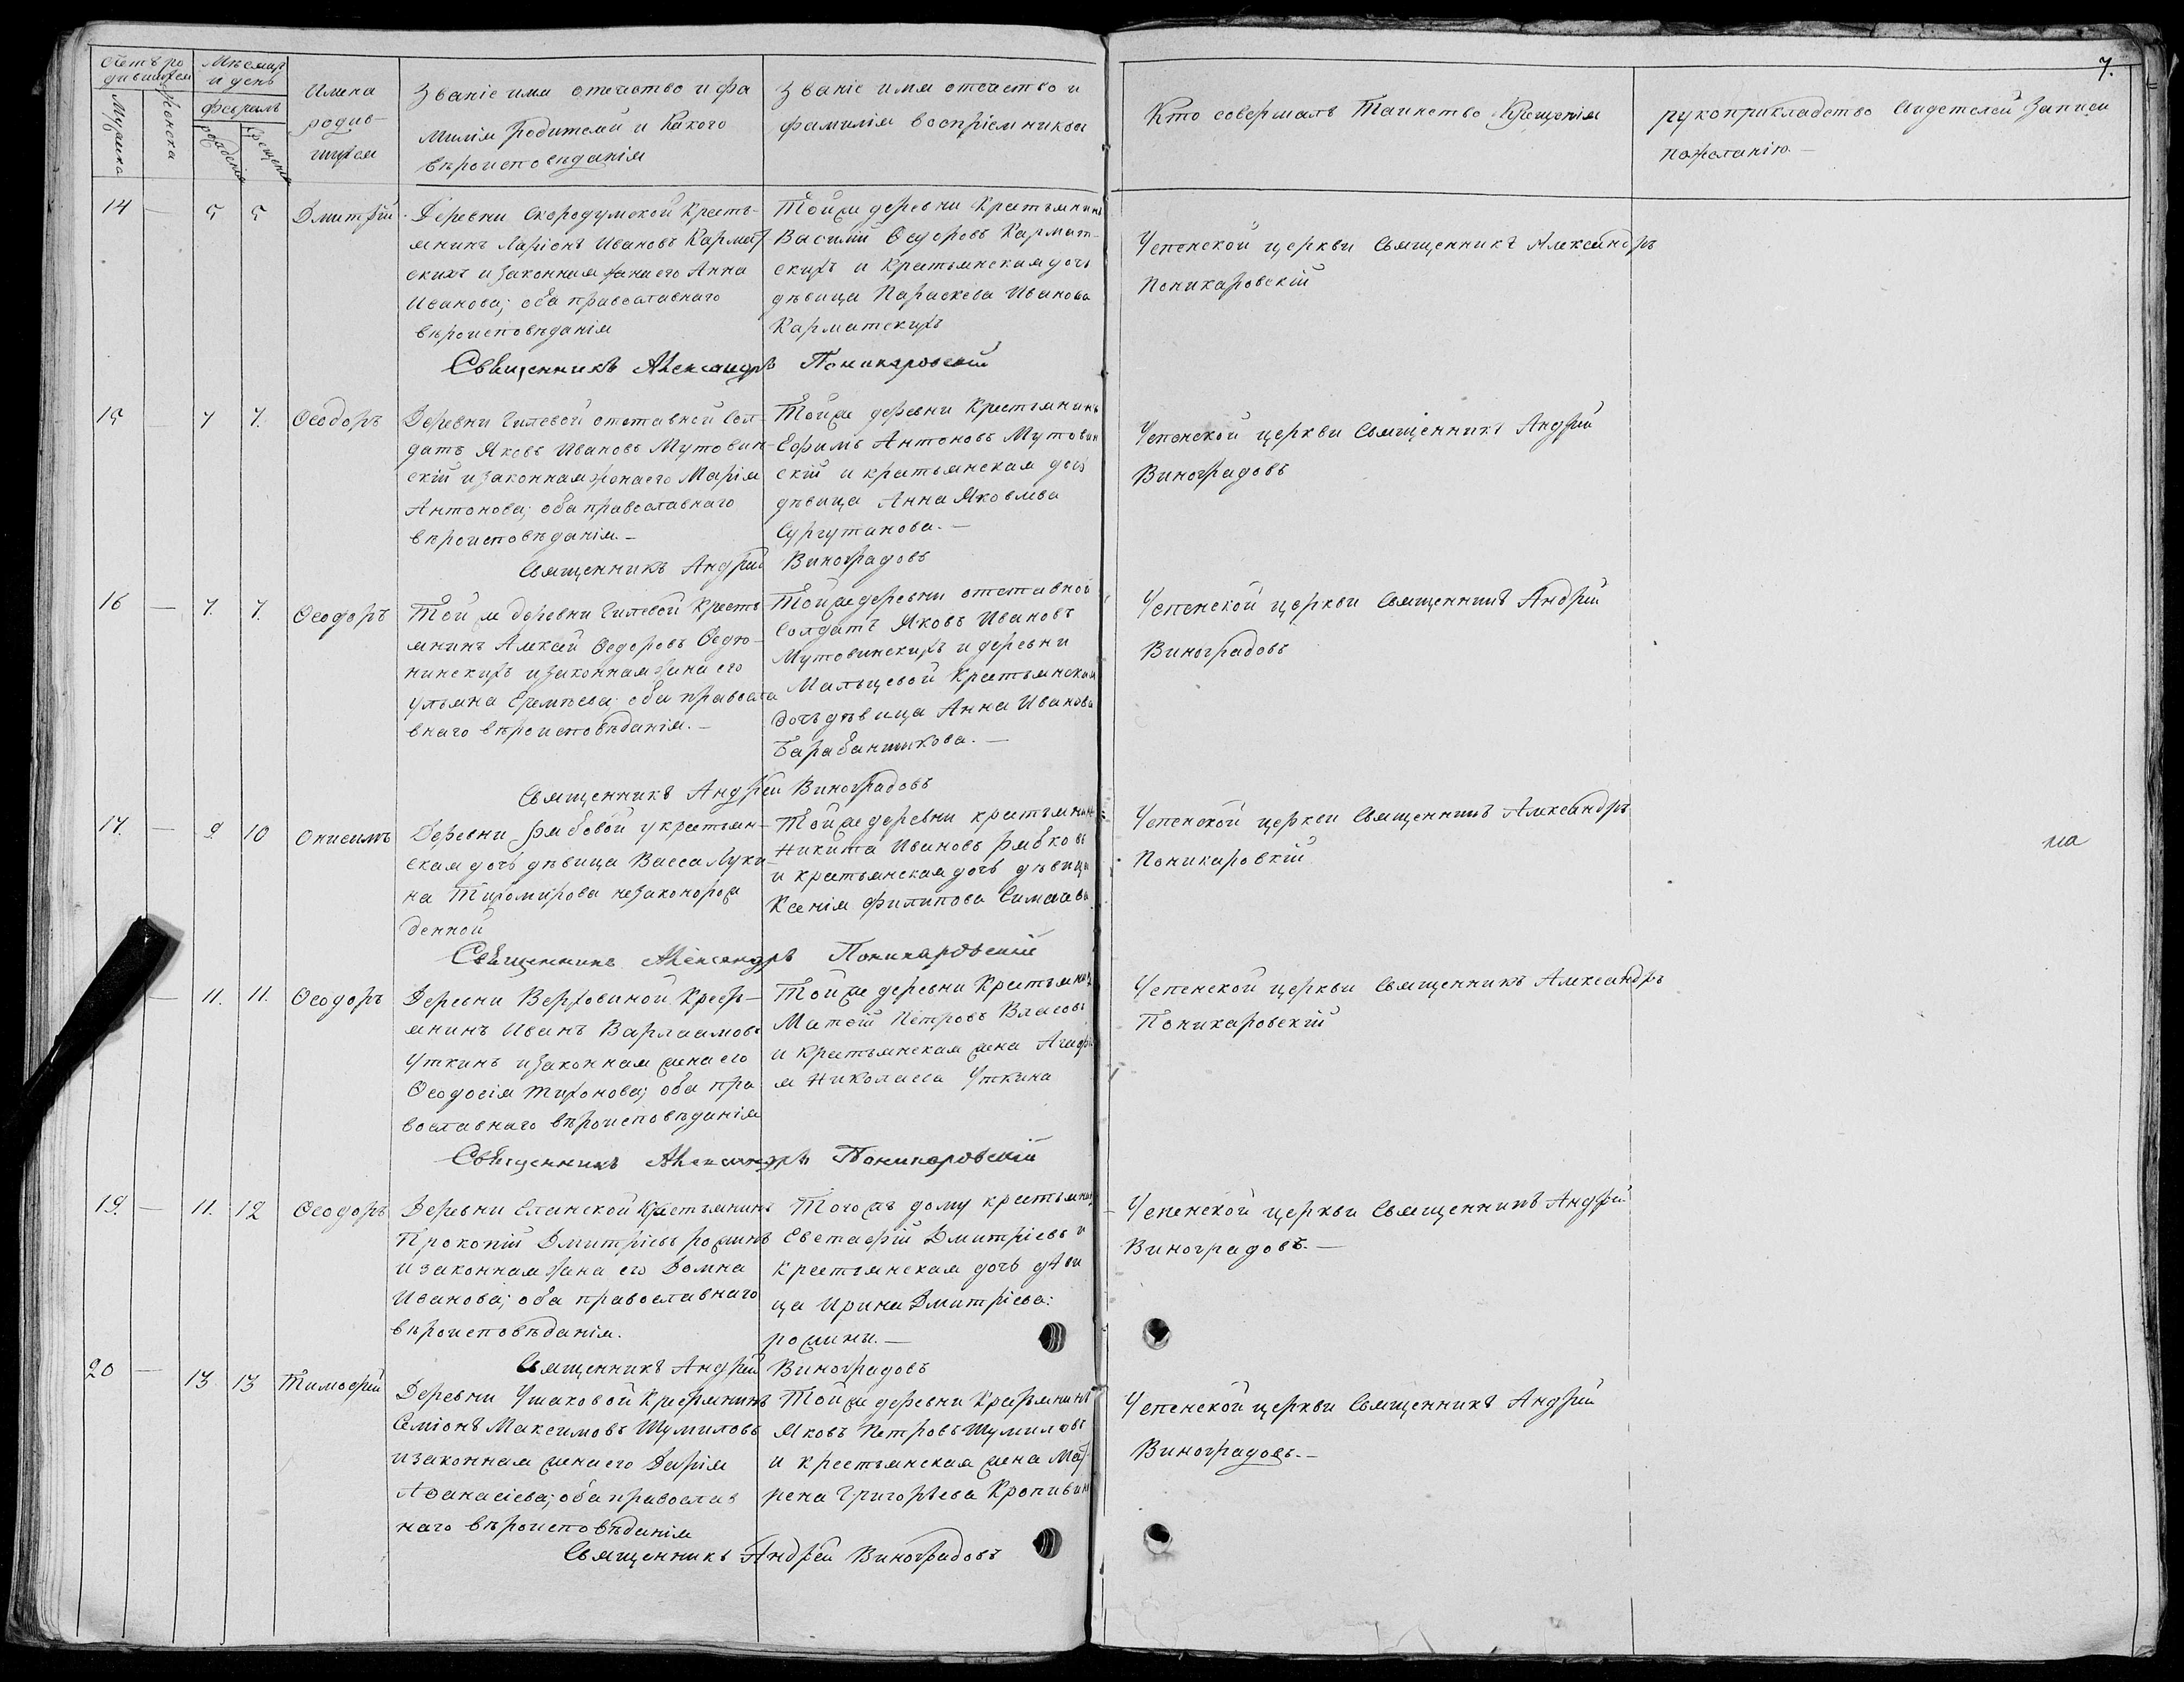 7.
Счетъ ро
дившихся
Мѣсяцъ
и день
Февраль
Мужска
Женска
рожденія
крещенія
Имена
родив-
шихся
Званіе имя отечество и фа
милія родителей и какого
вѣроисповѣданія
Званіе имя отечество и
фамилія воспріемниковъ
Кто совершалъ Таинство Крещенія
рукоприкладство свидетелей записи
по желанію.—
14 — 5 5 Дмитрій
Деревни Скородумской Кресть-
янинъ Ларіонъ Ивановъ Кармат
скихъ и законная жена его Анна
Иванова; оба православнаго
вѣроисповѣданія
Той же деревни Крестьянинъ
Василій Ѳедоровъ Кармат-
скихъ и Крестьянская дочь
дѣвица Параскева Иванова
Карматскихъ
Успенской церкви Священникъ Александръ
Поникаровскій
Священникъ Александръ Поникаровскій
15 7 7. Ѳеодоръ
Деревни Гилевой отставной Сол-
датъ Яковъ Ивановъ Мутовин-
скій и законная жена его Марія
Антонова; оба православнаго
вѣроисповѣданія.—
Той же деревни Крестьянинъ
Ефимъ Антоновъ Мутовин
скій и крестьянская дочь
дѣвица Анна Яковлева
Сургутанова.—
Успенской церкви Священникъ Андрей
Виноградовъ
Священникъ Андрей Виноградовъ
16 — 7. 7. Ѳеодоръ
Той же деревни Гилевой Кресть
янинъ Алексей Ѳедоровъ Ѳедю-
нинскихъ и законная жена его
Ульяна Еремѣева; оба правосла
внаго вѣроисповѣданія.—
Той же деревни отставной
Солдатъ Яковъ Ивановъ
Мутовинскихъ и деревни
Мальцевой Крестьянская
дочь дѣвица Анна Иванова
Барабанщикова.—
Успенской церкви Священникъ Андрей
Виноградовъ
Священникъ Андрей Виноградовъ
17. — 9 10 Онисимъ
Деревни Рябовой у крестьян-
ская дочь дѣвица Васса Луки-
на Тихомирова незаконорож
денной
Той же деревни крестьянинъ
Никита Ивановъ Рябковъ
и крестьянская дочь дѣвица
Ксенія Филипова
Успенской церкви Священникъ Александръ
Поникаровкій
Священникъ Александръ Поникаровскій
— 11. 11. Ѳеодоръ
Деревни Верховиной Кресть-
янинъ Иванъ Варлаамовъ
Уткинъ и законная жена его
Ѳеодосія Тихонова; оба пра
вославнаго вѣроисповѣданія
Той же деревни Крестьянинъ
Матѳій Петровъ Власовъ
и Крестьянская жена Агафі
я Николаева Уткина
Успенской церкви Священникъ Александръ
Поникаровскій
Священникъ Александръ Поникаровскій
19. — 11. 12 Ѳеодоръ
Деревни Еланской Крестьянинъ
Прокопій Дмитріевъ рожинъ
и законная жена его Домна
Иванова; оба православнаго
вѣроисповѣданія.
Того жъ дому крестьянинъ
Евстафій Дмитріевъ и
крестьянская дочь дѣви
ца Ирина Дмитріева:
рожины.—
Успенской церкви Священникъ Андрей
Виноградовъ.—
Священникъ Андрей Виноградовъ
20 — 13 13 Тимофей
Деревни Ушаковой Крестьянинъ
Семіонъ Максимовъ Шумиловъ
и законная жена его Дарія
Аѳанасіева; оба православ
наго вѣроисповѣданія
Той же деревни Крестьянинъ
Яковъ Петровъ Шумиловъ
и крестьянская жена Мат
рена Григорьева Кропивин
Успенской церкви Священникъ Андрей
Виноградовъ.—
Священникъ Андрей Виноградовъ